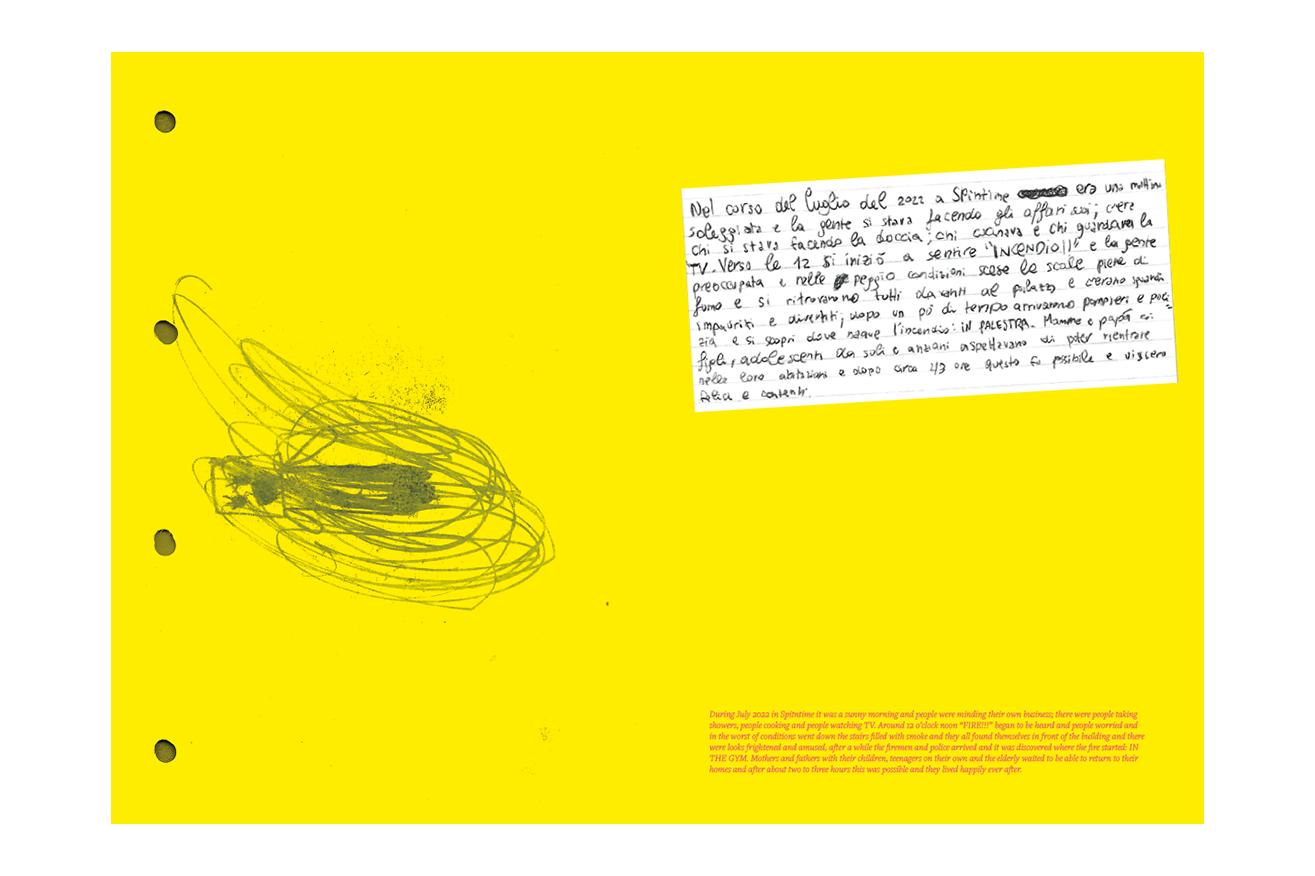 Nel corso del luglio del 2022 a Spintime era una mattina
soleggiata e la gente si stava facendo gli affari suoi; c'era
chi si stava facendo la doccia; chi cucinava e chi guardava la
TV. Verso le 12 si iniziò a sentire "INCENDIO!!" e la gente
preoccupata e nelle peggio condizioni scese le scale piene di
fumo e si ritrovarono tutti davanti al palazzo e c'erano sguardi
impauriti e divertiti; dopo un pò di tempo arrivarono pompieri e poli-
zia e si scoprì dove nacque l'incendio: IN PALESTRA. Mamme e papà coi
figli, adolescenti da soli e anziani aspettavano di poter rientrare
nelle loro abitazioni e dopo circa 2/3 ore questo fu possibile e vissero
felici e contenti.
During July 2022 in Spitntime it was a sunny morning and people were minding their own business; there were people taking
showers, people cooking and people watching TV. Around 12 o'clock noon “FIRE!!!” began to be heard and people worried and
in the worst of conditions went down the stairs filled with smoke and they all found themselves in front of the building and there
were looks frightened and amused, after a while the firemen and police arrived and it was discovered where the fire started: IN
THE GYM. Mothers and fathers with their children, teenagers on their own and the elderly waited to be able to return to their
homes and after about two to three hours this was possible and they lived happily ever after.